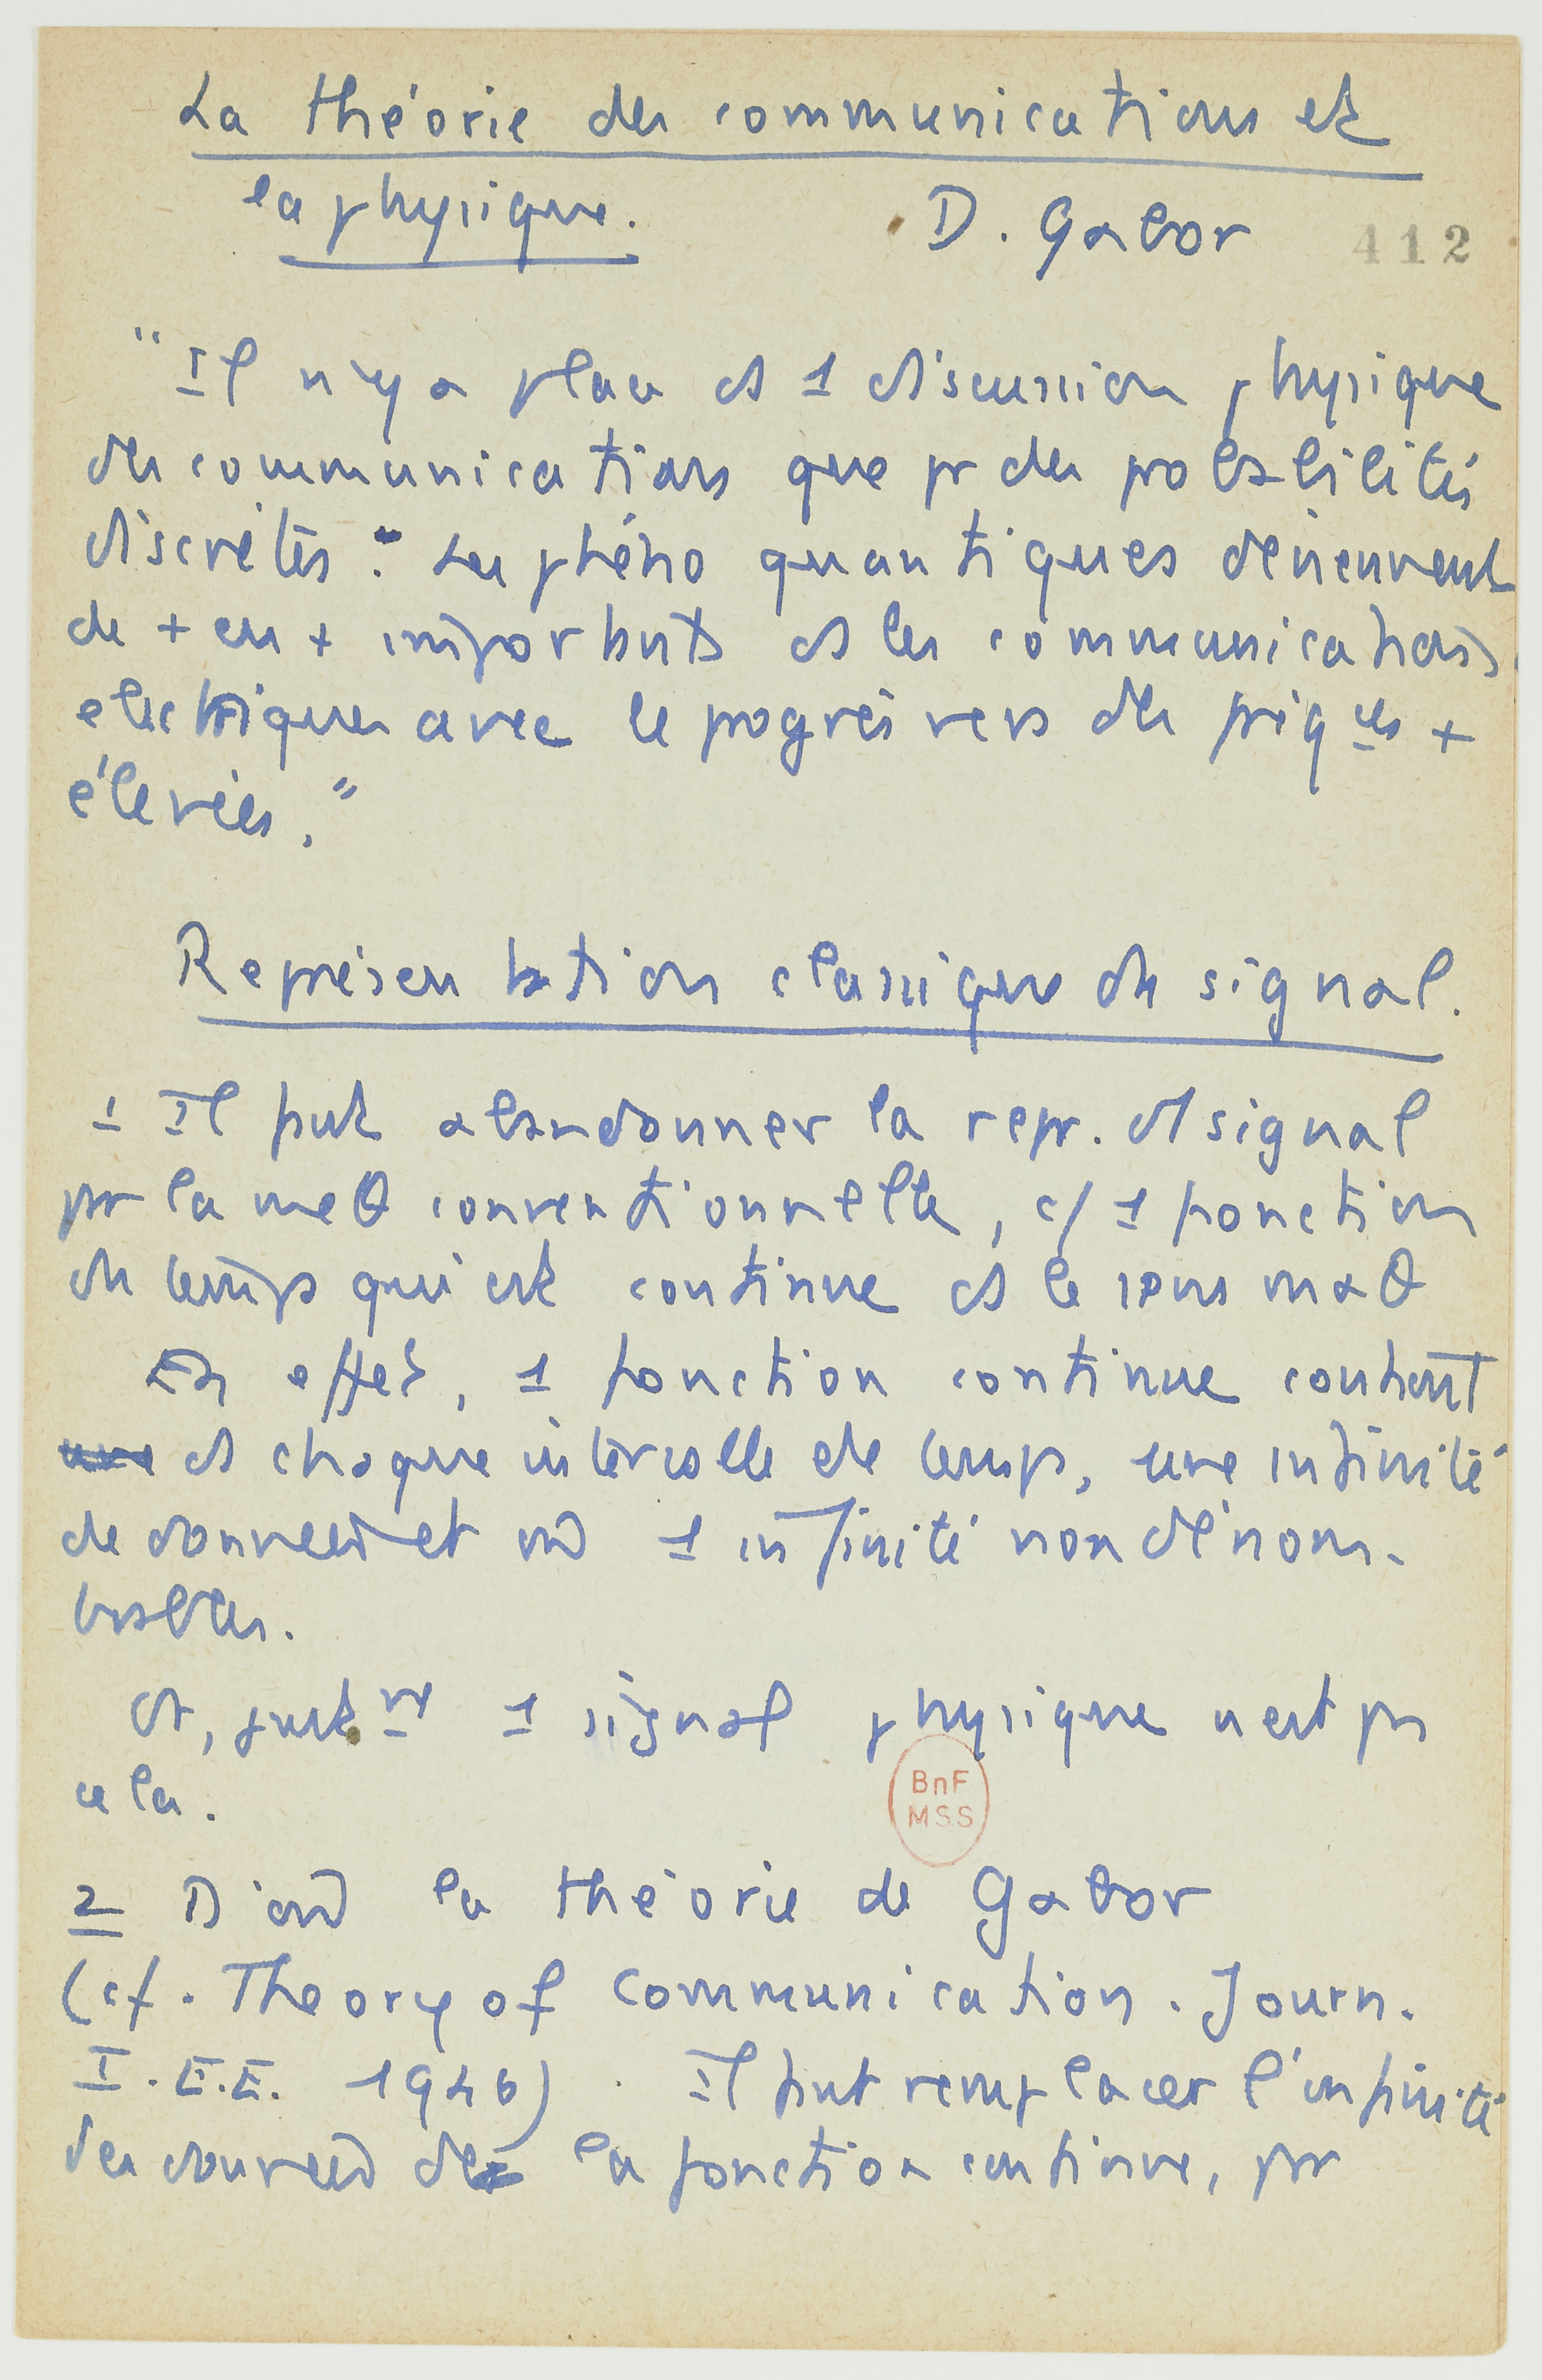 La théorie des communications et
la physique. D. Gabor 412
"Il n'y a place ds 1 discussion physique
des communications que pr des probabilités
discrètes. Les phéno quantiques deviennent
de + en + importants ds les communications
electriques avec le progrès vers des fréq ces +
élevées."
Représentation classique du signal.
1 Il faut abandonner la repr. du signal
par la meθ conventionnelle, c/ 1 fonction
du temps qui est continue ds le sens maθ
En effet, 1 fonction continue contient
ds chaque intervalle de temps, une infinité
de données et 1 infinité non dénom-
brables.
Or, 1 signal physique n'est pas
cela.
2 D'où la théorie de Gabor
(cf. Theory of communication. Journ.
I.E.E. 1946). Il faut remplacer l'infinité
des données de la fonction continue, par
BnF
MSS